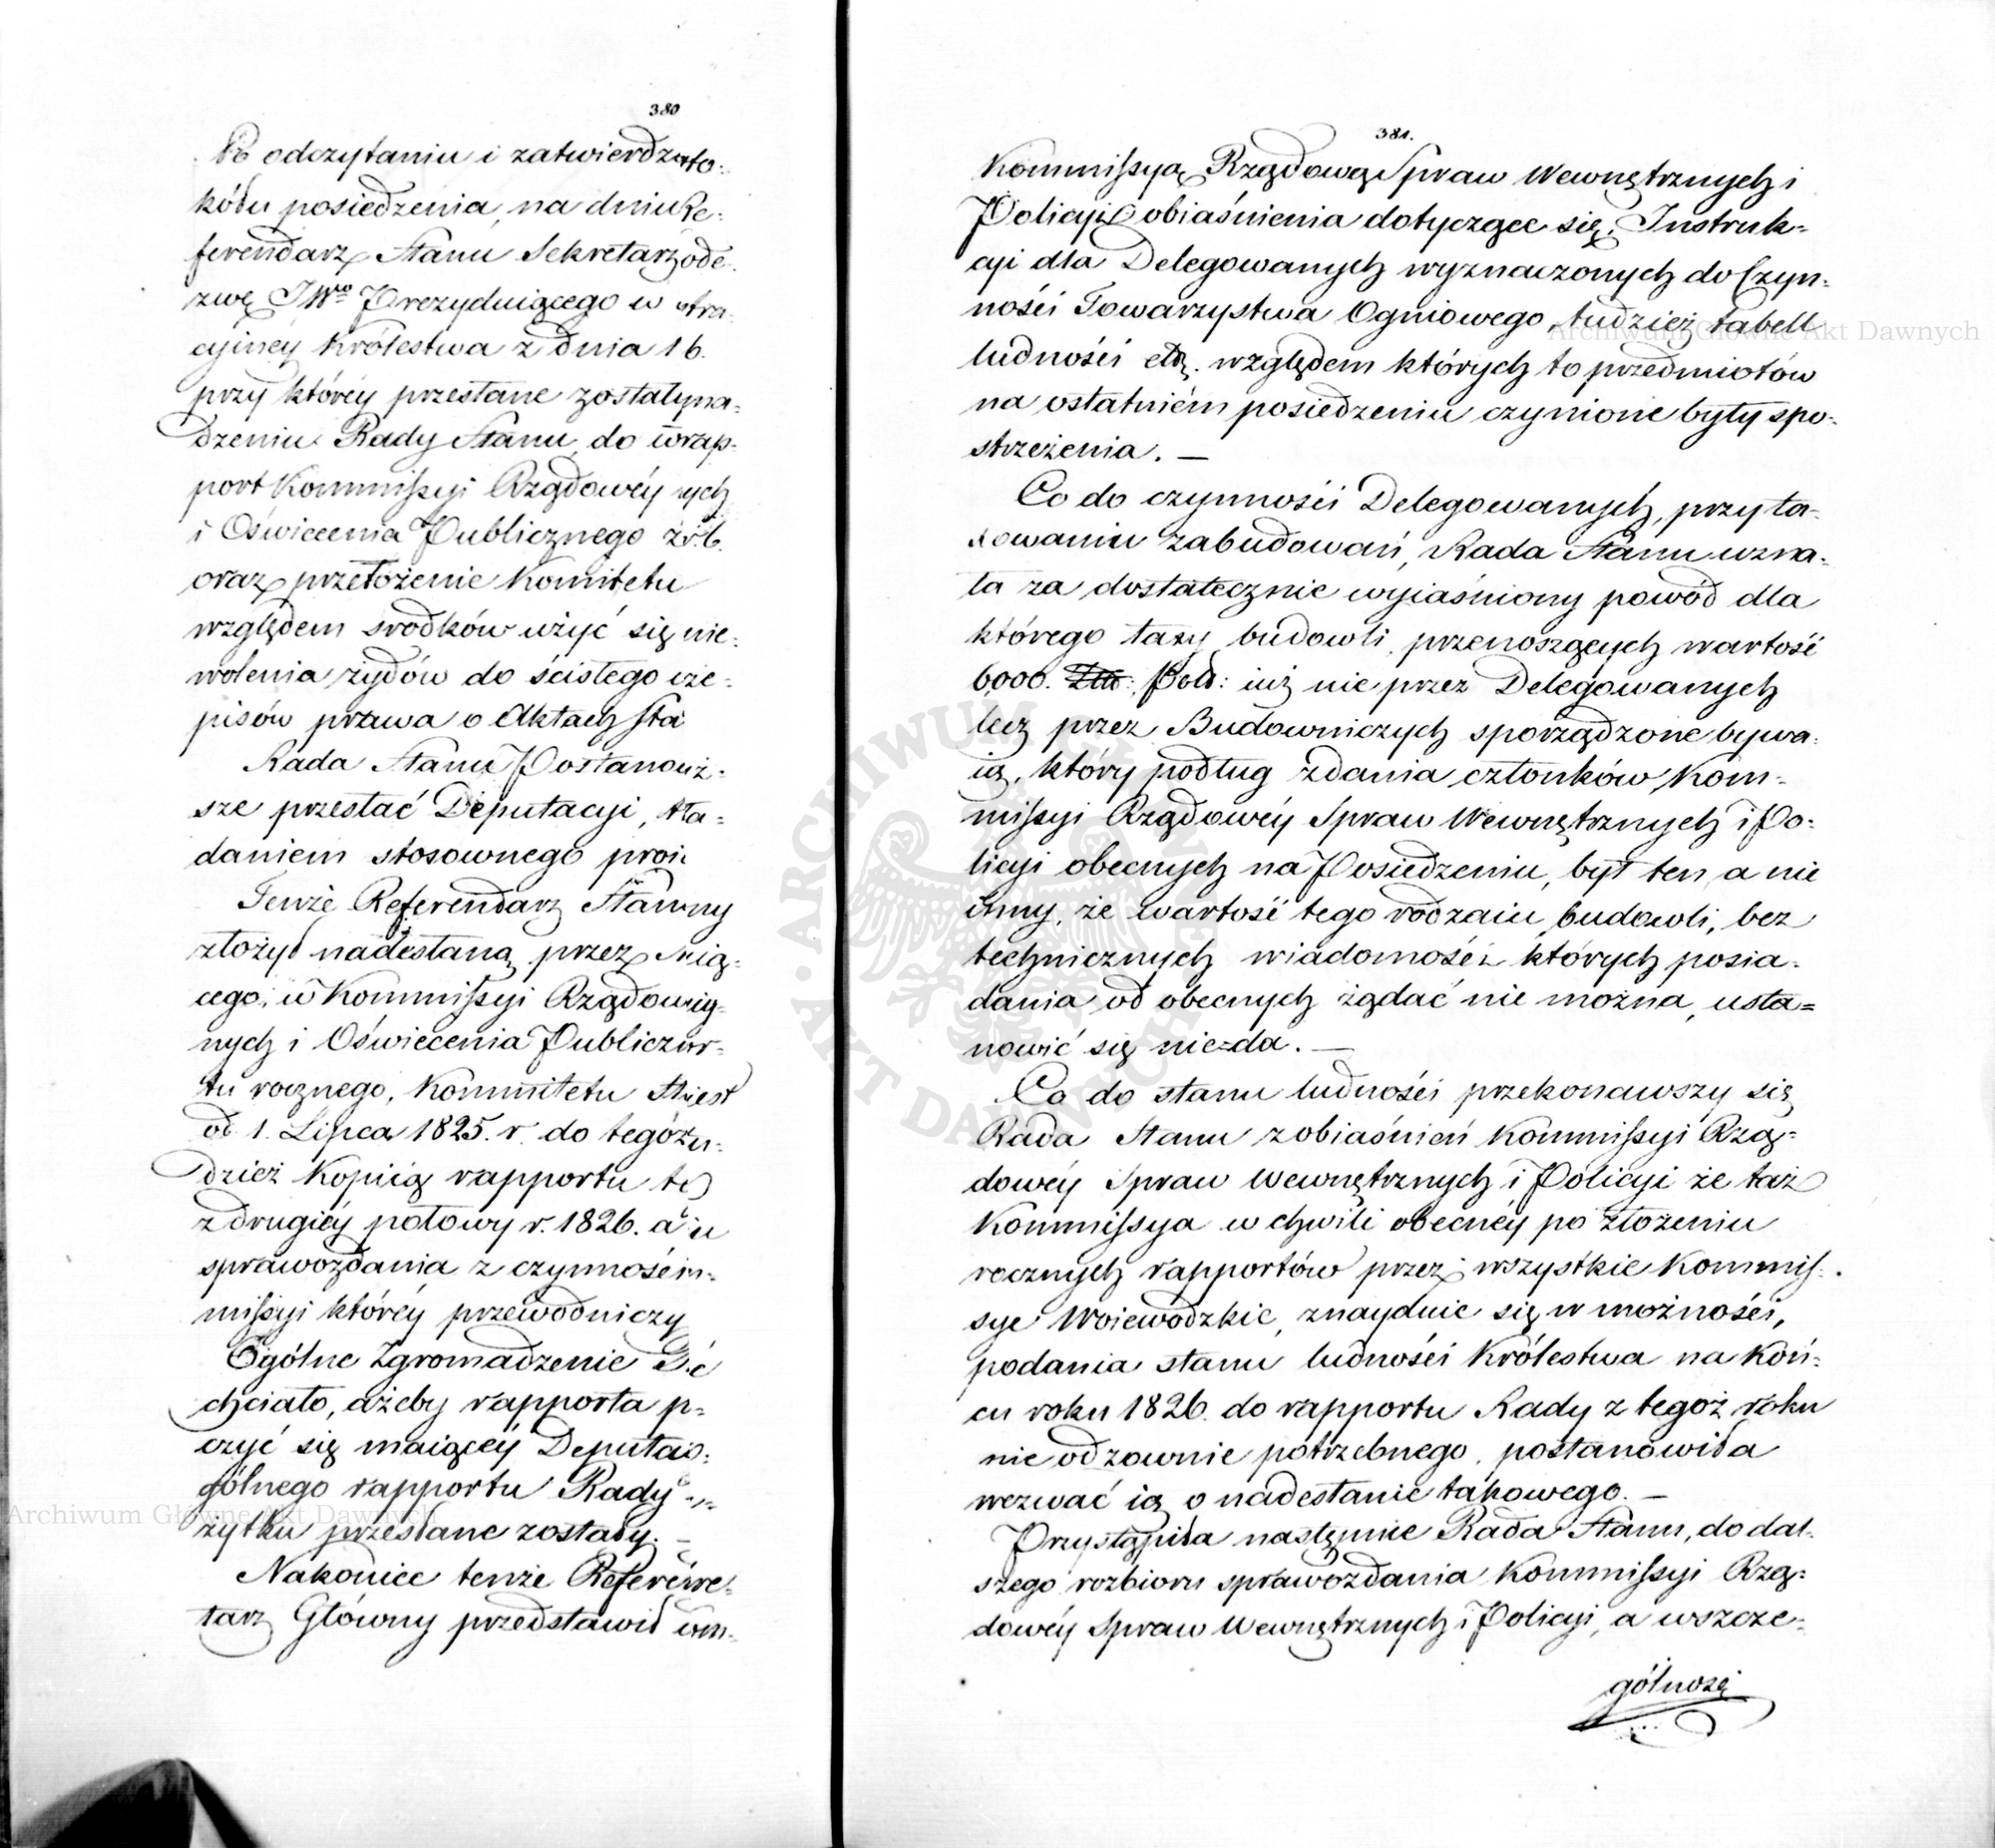 380
Po odczytaniu i zatwierdz
kółu posiedzenia, na dniu Re-
ferendarz Stanu Sekretarz ode-
zwę JWo Prezyduiącego w
cyinéy Królestwa z dnia 16.
przy któréy przesłane zostały
dzeniu Rady Stanu, do
port Kommissyi Rządowéy
i Oświecenia Publicznego
oraz przełożenie Komitetu
względem srodków użyć się nie-
wolenia żydów do ścisłego
pisów prawa o Aktach Sta
Rada Stanu
sze przesłać Deputacyi,
daniem stosownego
Tenże Referendarz
złożył nadesłaną przez
cego, w Kommissyi
nych i Oświecenia
tu rocznego, Kommitetu
od 1. Lipca 1825. r. do
dzież Kopiią rapportu
z drugiéy połowy r. 1826.
sprawozdania z
missyi któréy przewodniczy
Ogólne Zgromadzenie
chciało, ażeby rapporta
czyć się maiącéy
gólnego rapportu Rady
żytku przesłane zostały. —
Nakoniec tenże
tarz Główny przedstawił
381.
Kommissyą Rządową Spraw Wewnętrznych i
Policyi obiaśnienia dotyczące się, Instruk-
cyi dla Delegowanych wyznaczonych do Czyn-
ności Towarzystwa Ogniowego, tudzież tabell
ludności etc. względem których to przedmiotów
na ostatniém posiedzeniu czynione były spo-
strzeżenia. —
Co do czynności Delegowanych, przy ta-
xowaniu zabudowań, Rada Stanu uzna-
ła za dostatecznie wyiaśniony powód dla
którego taxy budowli, przenoszących wartość
6,000. Złł: Pold: iuż nie przez Delegowanych
lecz przez Budowniczych sporządzone bywa-
ią, który podług zdania członków Kom-
missyi Rządowéy Spraw Wewnętrznych i Po-
licyi obecnych na Posiedzeniu, był ten a nie
inny, że wartość tego rodzaiu budowli, bez
technicznych wiadomości których posia-
dania od obecnych żądać nie można, usta-
nowić się nie da. —
Co do stanu ludności przekonawszy się
Rada Stanu z obiaśnień Kommissyi Rzą-
dowéy Spraw Wewnętrznych i Policyi że taż
Kommissya w chwili obecnéy po złożeniu
rocznych rapportów przez wszystkie Kommis-
sye Woiewodzkie, znayduie się w możności,
podania stanu ludności Królestwa na koń-
cu roku 1826. do rapportu Rady z tegoż roku
nie odzownie potrzebnego, postanowiła
wezwać ią o nadesłanie takowego. —
Przystąpiła następnie Rada Stanu, do dal-
szego rozbioru sprawozdania Kommissyi Rzą-
dowéy Spraw Wewnętrznych i Policyi, a wszcze-
gólności
Archiwum Główne Akt Dawnych
Archiwum Główne Akt Dawnych